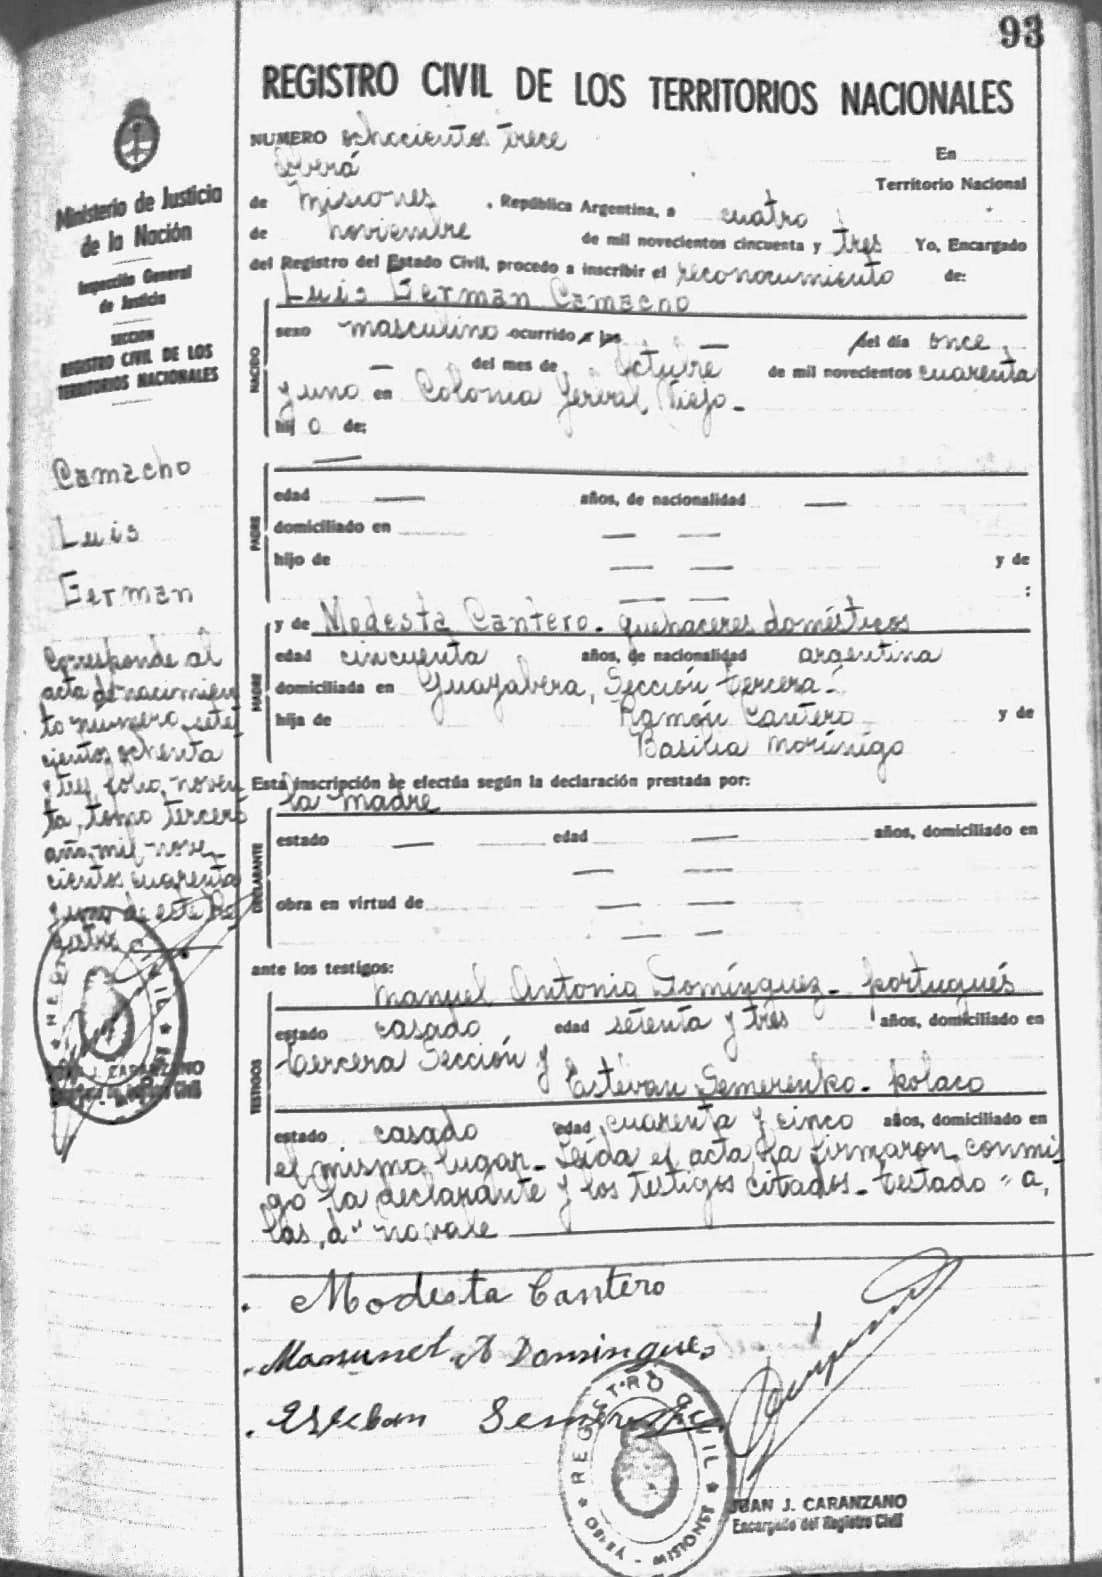 93
REGISTRO CIVIL DE LOS TERRITORIOS NACIONALES
Ministerio de Justicia
de la Nación
Inspección General
de Justicia
SECCION
REGISTRO CIVIL DE LOS
TERRITORIOS NACIONALES
Camacho
Luis
German
Corresponde al
acta de nacimien
to número sete
cientos ochenta
y tres, folio noven
ta, tomo tercero
año mil nove
cientos cuarenta
y uno de este Re
gistro
NUMERO ochocientos trece
En
Oberá
Territorio Nacional
de Misiones , República Argentina, a cuatro
de noviembre de mil novecientos cincuenta y tres Yo, Encargado
del Registro del Estado Civil, procedo a inscribir el reconocimiento de:
Luis German Camacho
NACIDO
sexo masculino ocurrido a las — del día once
— del mes de Octubre de mil novecientos cuarenta
y uno en Colonia Yerbal Viejo -
hij o de:
—
PADRE
edad — años, de nacionalidad —
domiciliado en — —
hijo de — — y de
— — :
MADRE
y de Modesta Cantero - quehaceres domésticos
edad cincuenta años, de nacionalidad argentina
domiciliada en Guayabera, Sección tercera -
hija de Ramón Cantero y de
Basilia Morínigo
Esta inscripción se efectúa según la declaración prestada por:
la madre
DECLARANTE
estado — edad — años, domiciliado en
— —
obra en virtud de — —
— —
ante los testigos:
TESTIGOS
Manuel Antonio Domínguez - portugués
estado casado edad setenta y tres años, domiciliado en
tercera Sección y
Estevan Semerenko - polaco
estado casado edad cuarenta y cinco años, domiciliado en
el mismo lugar - Leída el acta la firmaron conmi
go la declarante y los testigos citados - testado "a,
las, d" no vale
Modesta Cantero
Manunel A Domingues
Esteban
REGISTRO CIVIL
OBERA - MISIONES
JUAN J. CARANZANO
Encargado del Registro Civil